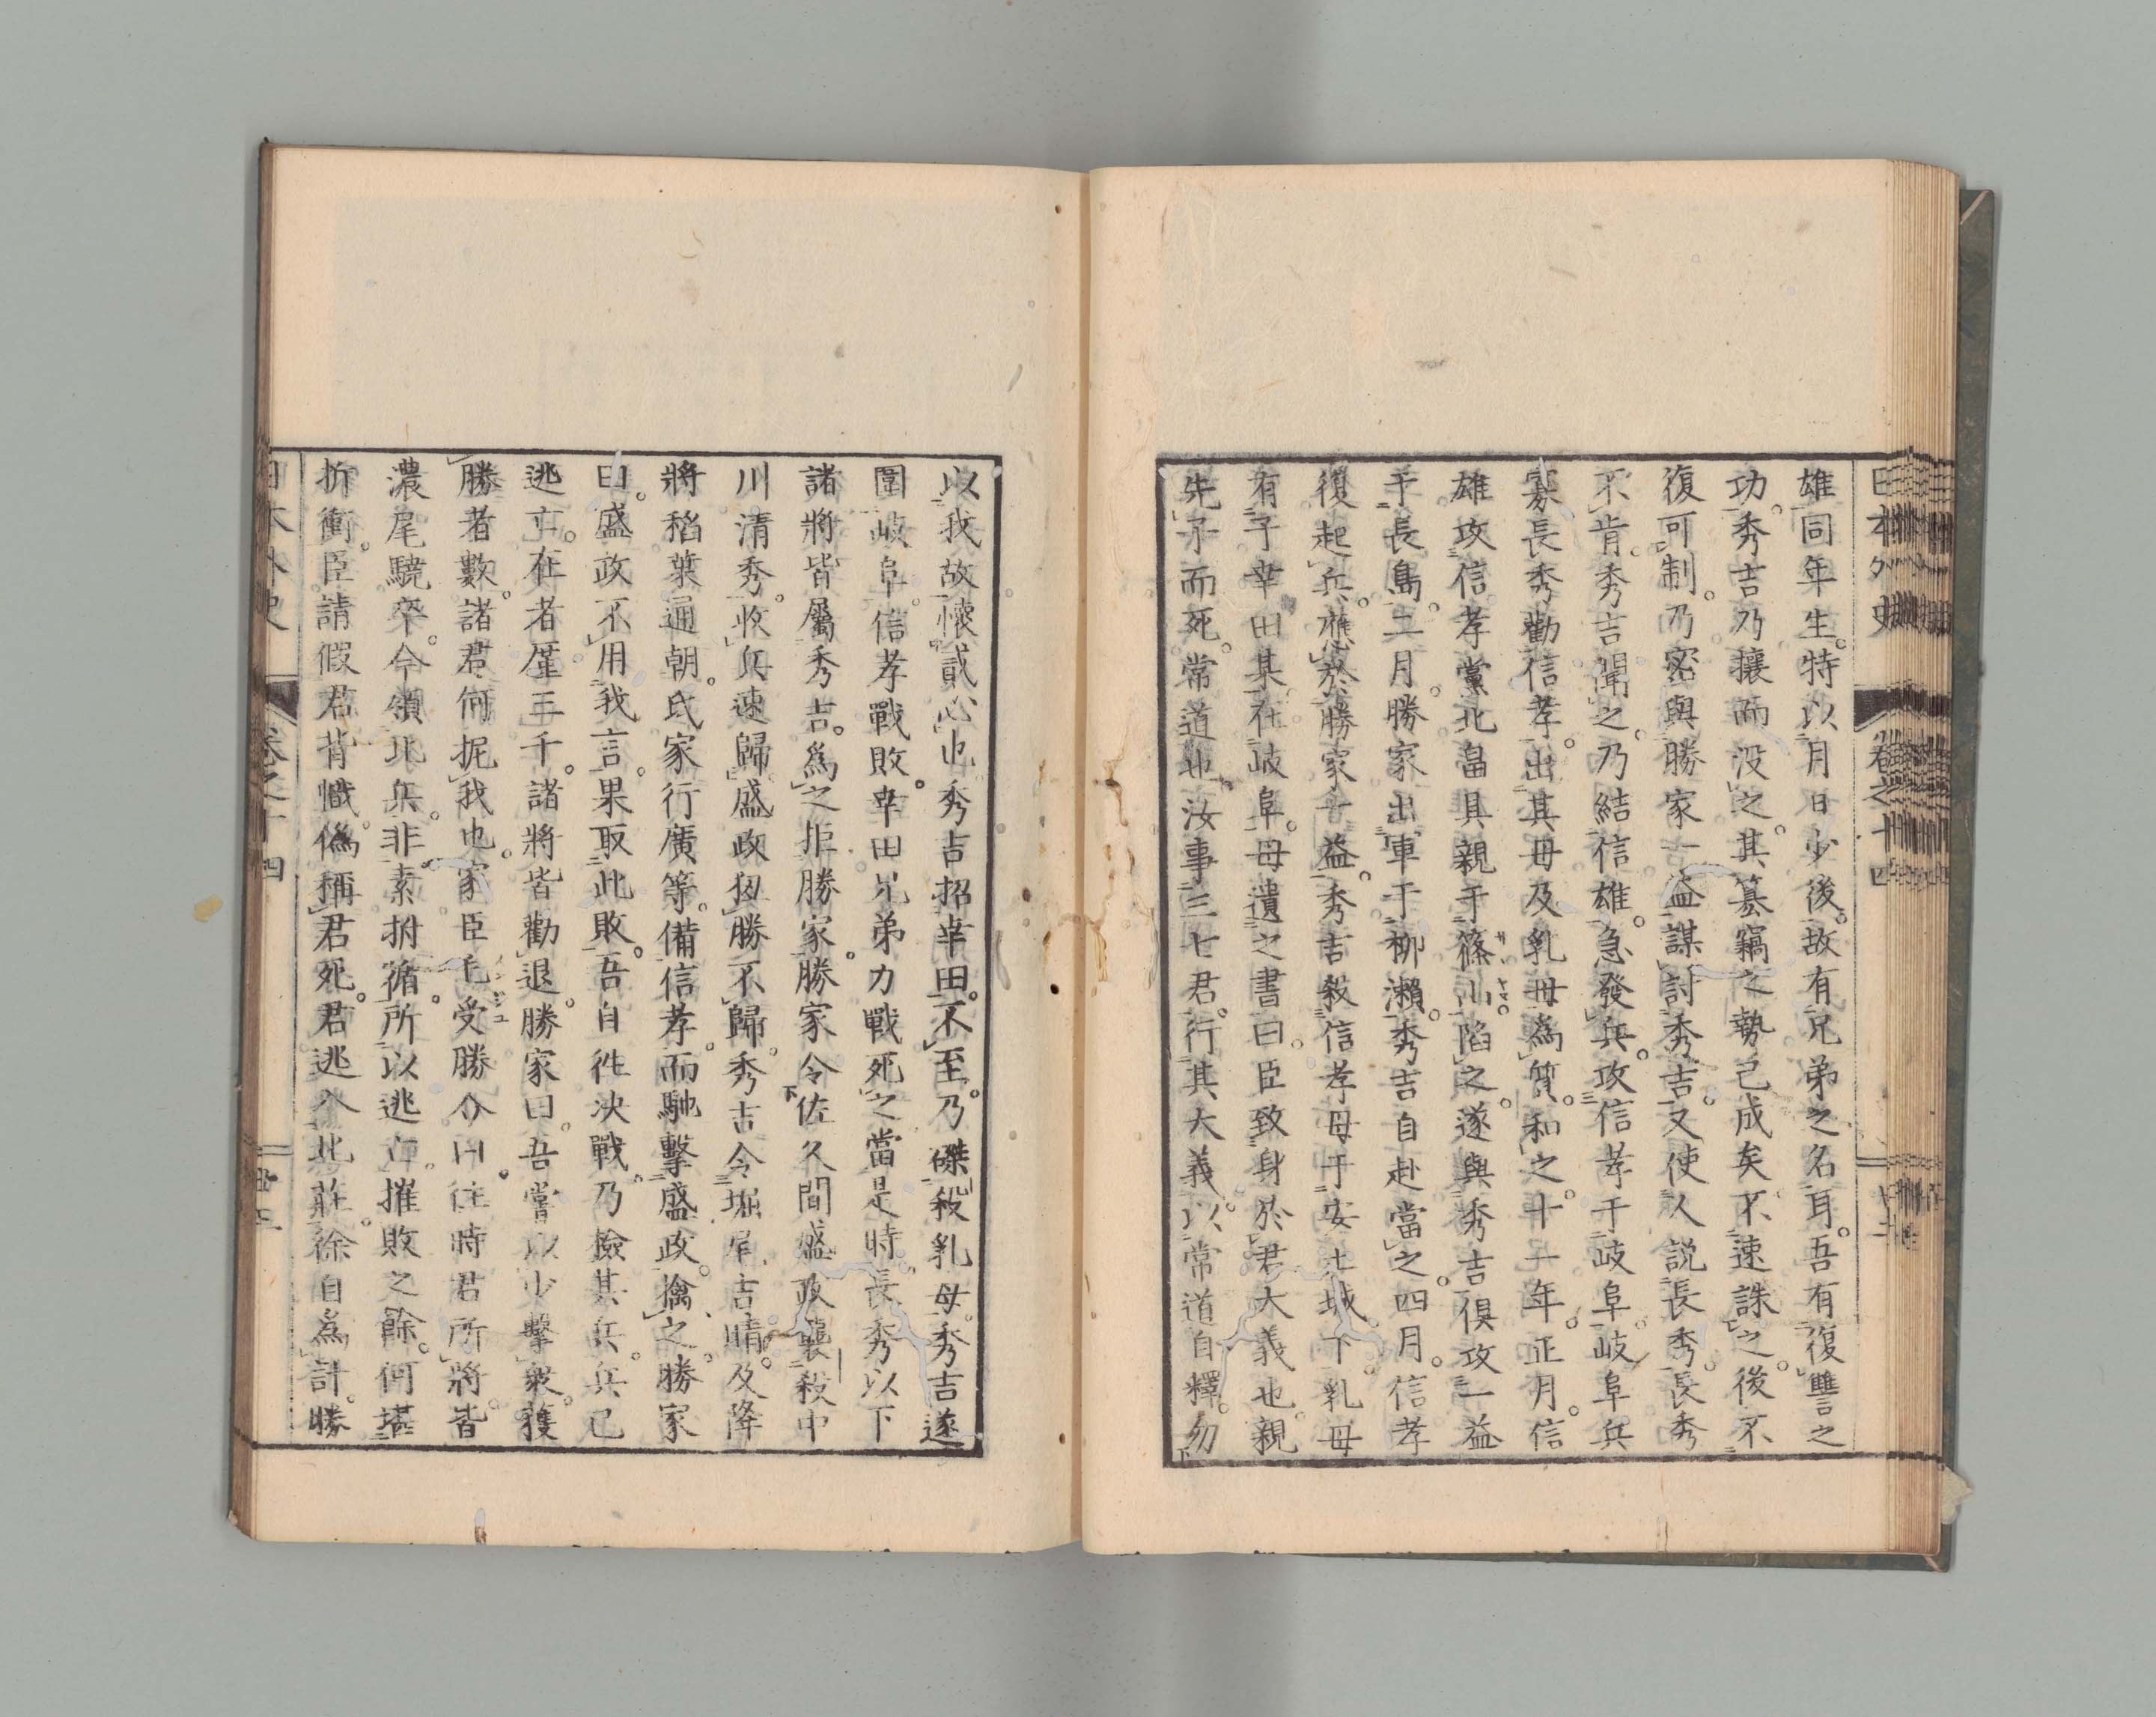 日本外史 卷之十四
雄同年生。特以月日少後。故有兄弟之名耳。吾有復讐之
功。秀吉乃攘而没之。其簒竊之勢已成矣。不速誅之。後不
復可制。乃密與勝家一益謀討秀吉。又使人説長秀。長秀
不肯。秀吉聞之。乃結信雄。急發兵。攻信孝于岐阜。岐阜兵
寡。長秀勸信孝。出其母及乳母爲質。和之。十一年。正月。信
雄攻信孝黨北畠具親于篠山。陷之。遂與秀吉俱攻一益
于長島。二月。勝家出軍于柳瀬。秀吉自赴當之。四月。信孝
復起兵。應於勝家一益。秀吉殺信孝母于安土城下。乳母
有子幸田某。在岐阜。母遺之書曰。臣致身於君大義也。親
先子而死。常道也。汝事三七君。行其大義。以常道自釋。勿
以我故懷貳心也。秀吉招幸田。不至。乃磔殺乳母。秀吉遂
圍岐阜。信孝戰敗。幸田兄弟力戰死之。當是時。長秀以下
諸將皆屬秀吉。爲之拒勝家。勝家令佐久間盛政襲殺中
川清秀。收兵速歸。盛政狃勝不歸。秀吉令堀尾吉晴。及降
將稻葉通朝。氏家行廣等。備信孝。而馳擊盛政。擒之。勝家
曰。盛政不用我言。果取此敗。吾自往決戰。乃檢其兵。兵已
逃亡。在者厪三千。諸將皆勸退。勝家曰。吾嘗以少擊衆。獲
勝者數。諸君何抳我也。家臣毛受勝介曰。往時君所將。皆
濃尾驍卒。今領北兵。非素拊循。所以逃亡。摧敗之餘。何堪
折衝。臣請假君背幟。僞稱君死。君逃入北莊。徐自爲計。勝
日本外史 卷之十四